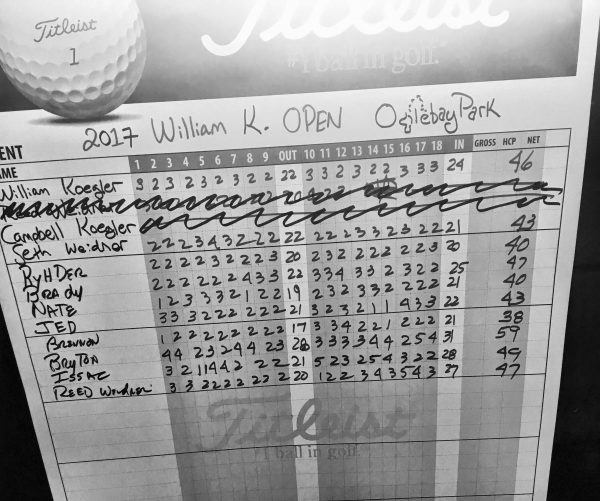 Titleist
1
Titleist
#1 ball in golf
2017 William K. OPEN Oglebay Park
1 2 3 4 5 6 7 8 9 OUT 10 11 12 13 14 15 16 17 18 IN GROSS HCP NET
William Koegler 22 24 46
Campbell Koegler
Seth Weidner 2 2 2 3 4 3 2 2 2 22 2 2 2 3 3 2 3 2 2 21 43
RyHDER 2 2 2 2 3 2 2 2 3 20 2 3 2 2 2 2 2 2 3 20 40
BRAdy 2 2 2 2 2 2 4 3 3 22 3 3 4 3 3 2 3 2 2 25 47
NATE 1 2 3 3 3 2 1 2 2 19 2 3 2 3 3 2 2 2 2 21 40
JED 3 3 3 2 2 2 2 2 2 21 3 2 3 2 1 1 4 3 3 22 43
Brannon 1 2 2 2 2 2 2 2 2 17 3 3 4 2 2 1 2 2 2 21 38
BRyTON 4 4 2 3 2 4 4 2 3 28 3 3 3 3 4 4 2 5 4 31 59
ISSAC 3 2 1 1 4 4 2 2 2 21 5 2 3 2 5 4 3 2 2 28 49
REED Weidner 3 3 2 2 2 2 2 2 2 20 1 2 2 3 4 3 5 4 3 27 47
Titleist
#1 ball in golf